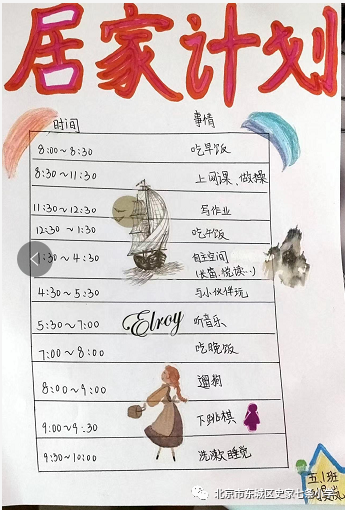 居家计划
时间 事情
8:00～8:30 吃早饭
8:30～11:30 上网课、做操
11:30～12:30 写作业
12:30～1:30 吃午饭
1:30～4:30 自主空间
(长笛、悦读…)
4:30～5:30 与小伙伴玩
Elroy
5:30～7:00 听音乐
7:00～8:00 吃晚饭
8:00～9:00 遛狗
9:00～9:30 下跳棋
9:30～10:00 洗漱睡觉
五.1班
北京市东城区史家七条小学